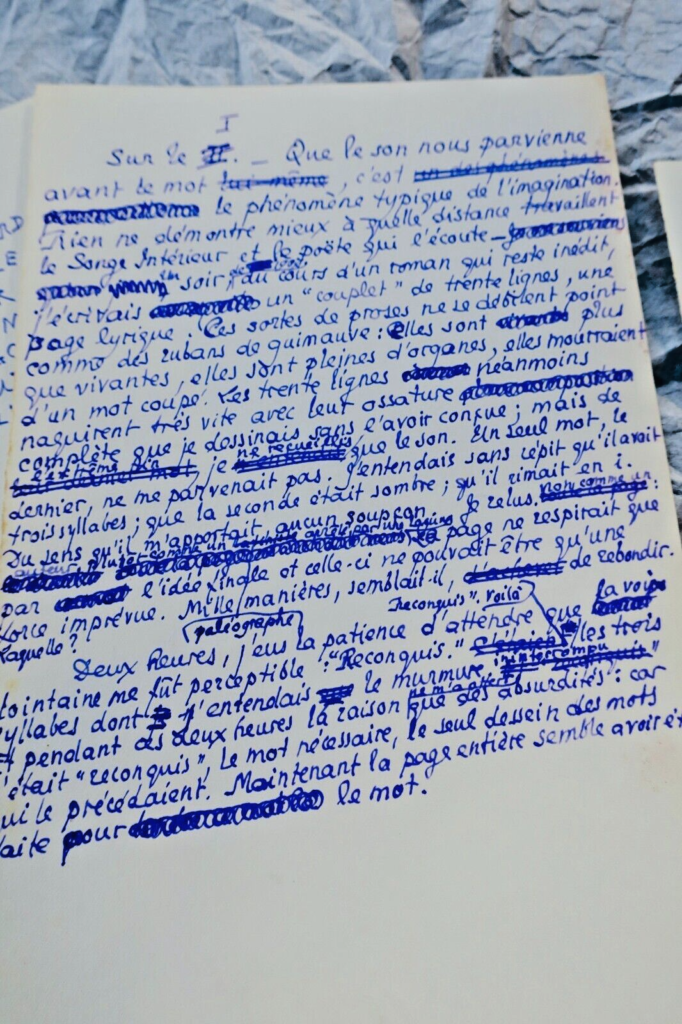 I
Sur le II. _ Que le son nous parvienne
avant le mot lui-même, c'est un des phénomènes
le phénomène typique de l'imagination.
Rien ne démontre mieux à quelle distance travaillent
le Songe Intérieur et le poëte qui l'écoute _
un soir, du cours d'un roman qui reste inédit,
j'écrivais un "couplet" de trente lignes, une
page lyrique. Ces sortes de proses ne se débitent point
comme des rubans de guimauve : elles sont plus
que vivantes, elles sont pleines d'organes, elles mourraient
d'un mot coupé. Les trente lignes néanmoins
naquirent très vite avec leur ossature
complète que je dessinais sans l'avoir conçue ; mais de
l'extrême fin je ne recueillis que le son. Un seul mot, le
dernier, ne me parvenait pas. J'entendais sans répit qu'il avait
trois syllabes ; que la seconde était sombre ; qu'il rimait en i.
Du sens qu'il m'apportait, aucun soupçon. Je relus, non comme un
auteur, plutôt comme un :
paléographe
La page ne respirait que
par l'idée finale et celle-ci ne pouvait être qu'une
force imprévue. Mille manières, semblait-il, de rebondir.
Laquelle ?
"Reconquis", voilà
Deux heures, j'eus la patience d'attendre que la voix
lointaine me fût perceptible : "Reconquis." les trois
syllabes dont j'entendais le murmure ininterrompu
pendant ces deux heures la raison ne m'a offert que des absurdités : car
c'était "reconquis", le mot nécessaire, le seul dessein des mots
qui le précédaient. Maintenant la page entière semble avoir ét
faite pour le mot.